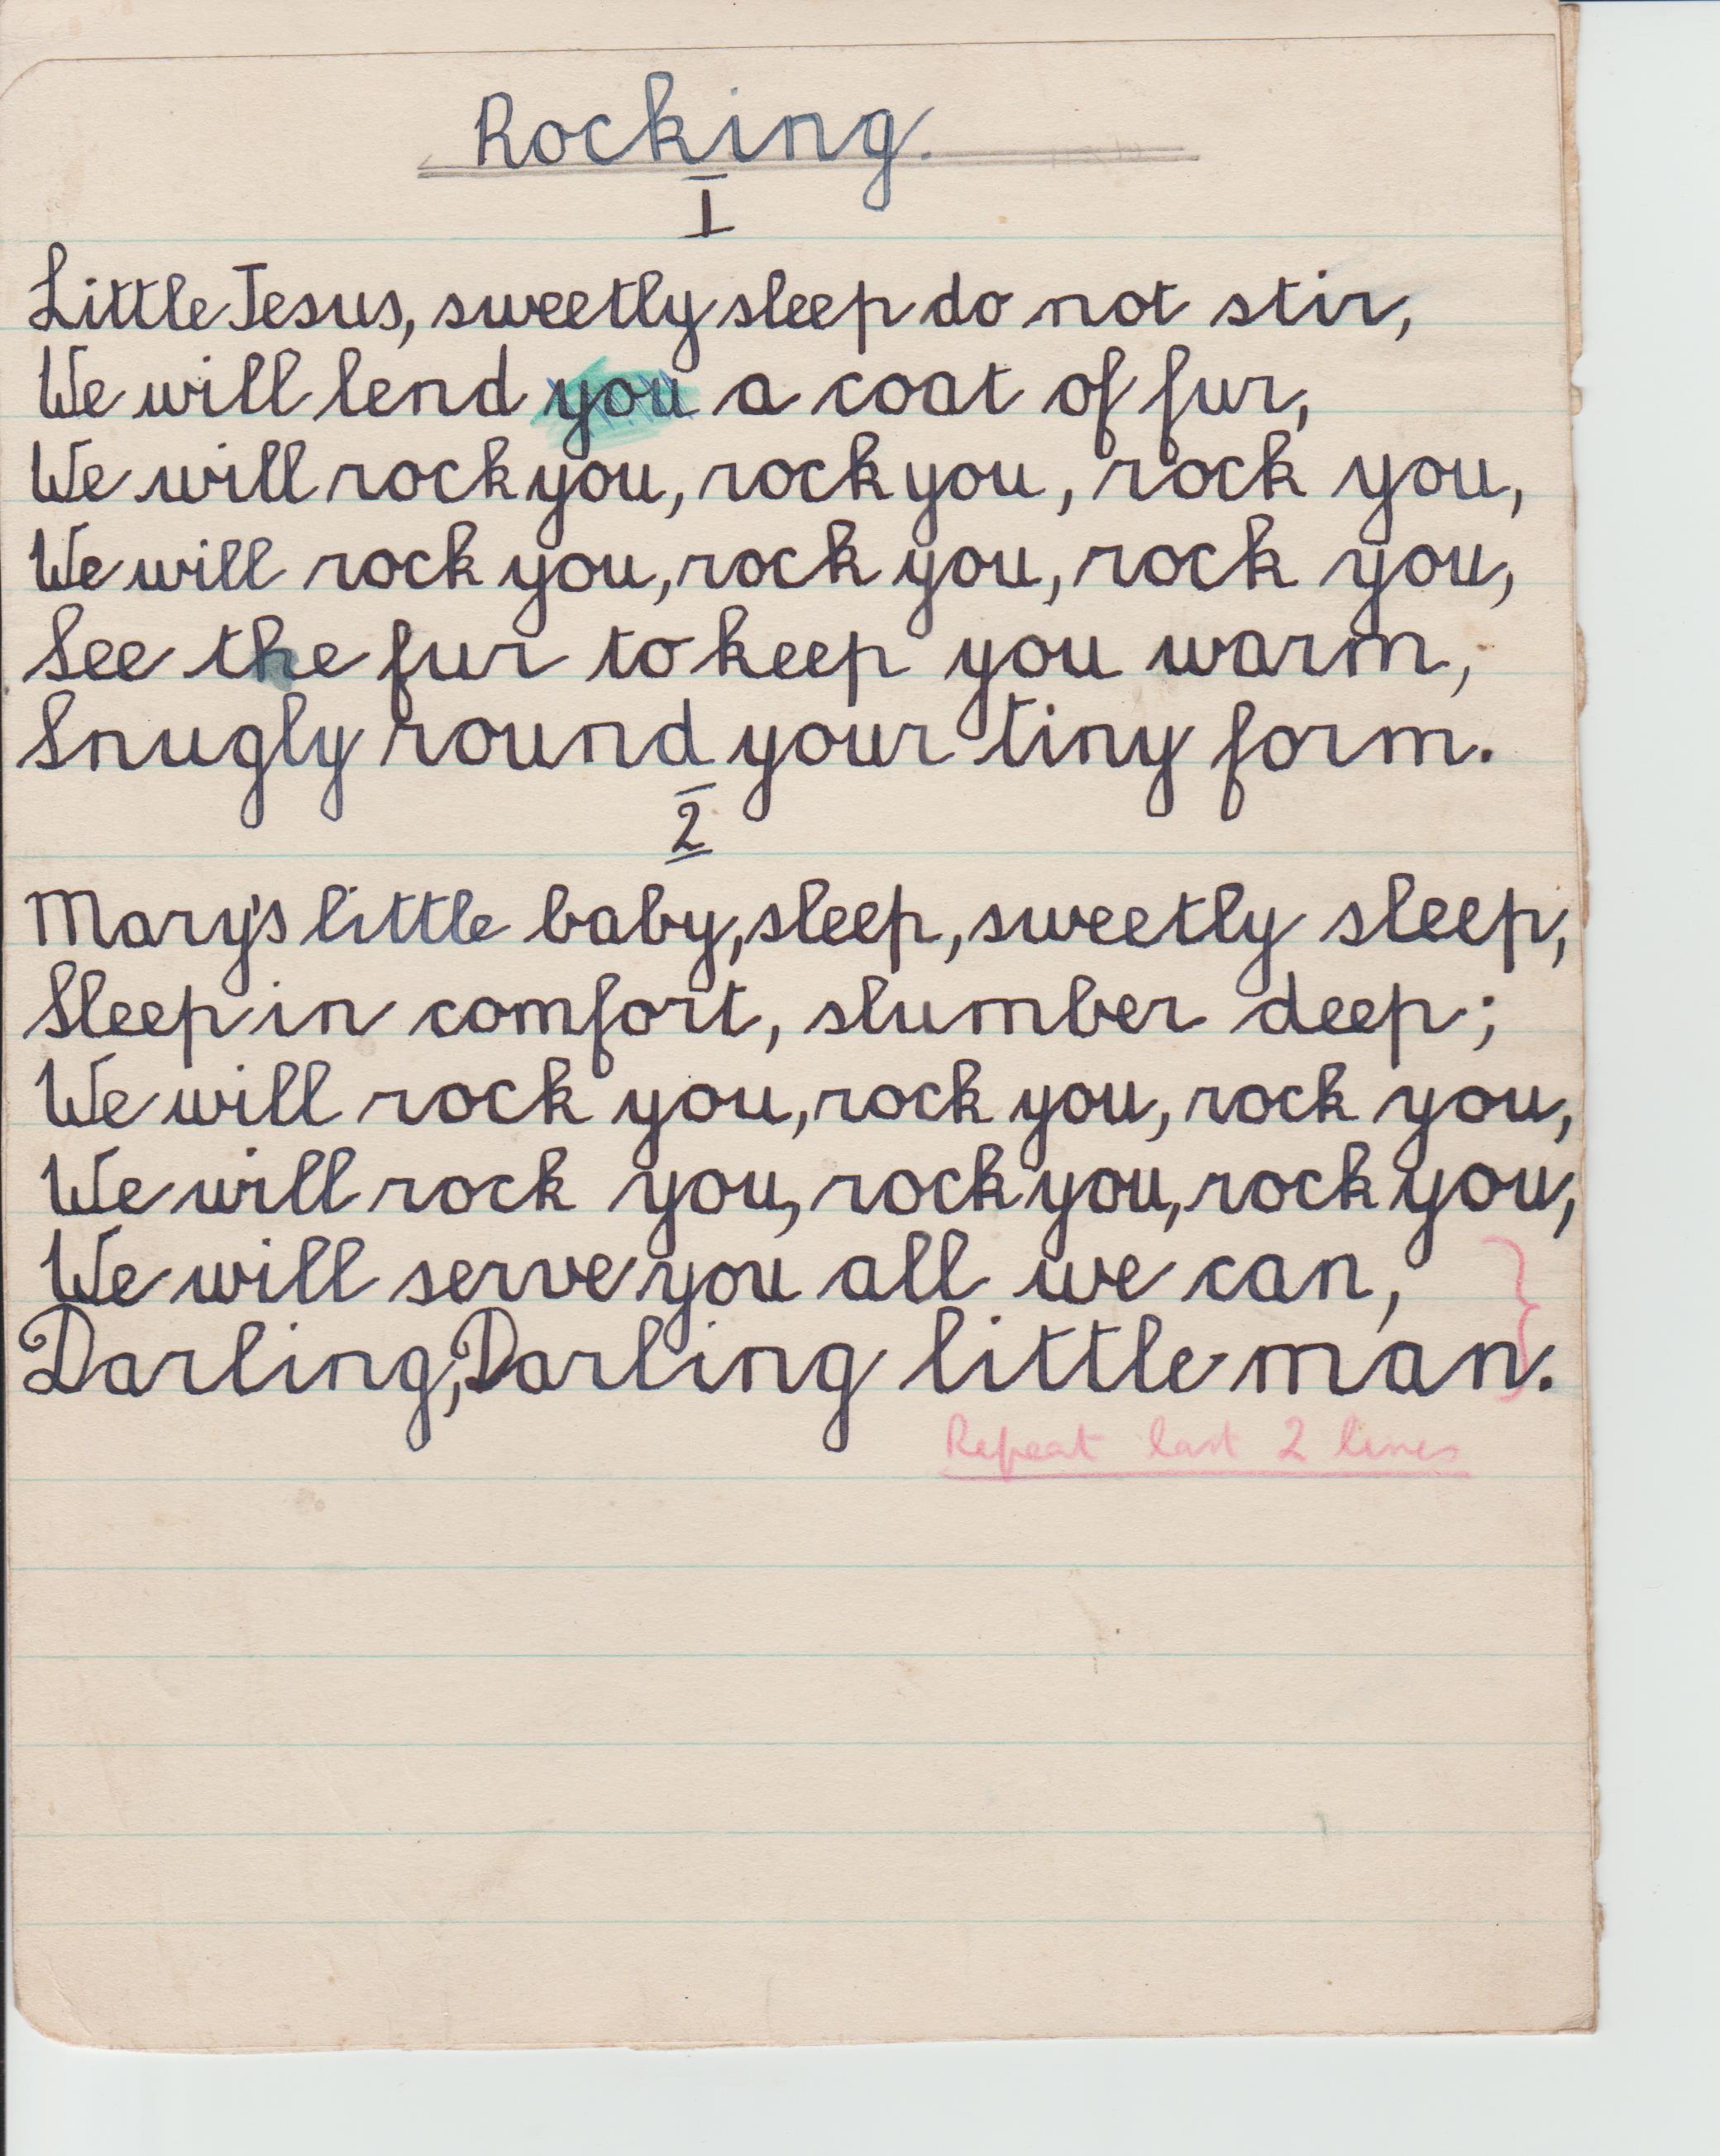 Rocking.
1
Little Jesus, sweetly sleep do not stir,
We will lend you a coat of fur,
We will rock you, rock you, rock you,
We will rock you, rock you, rock you,
See the fur to keep you warm,
Snugly round your tiny form.
2
Mary's little baby, sleep, sweetly sleep,
Sleep in comfort, slumber deep;
We will rock you, rock you, rock you,
We will rock you, rock you, rock you,
We will serve you all we can,
Darling, Darling little man.
Repeat last 2 lines